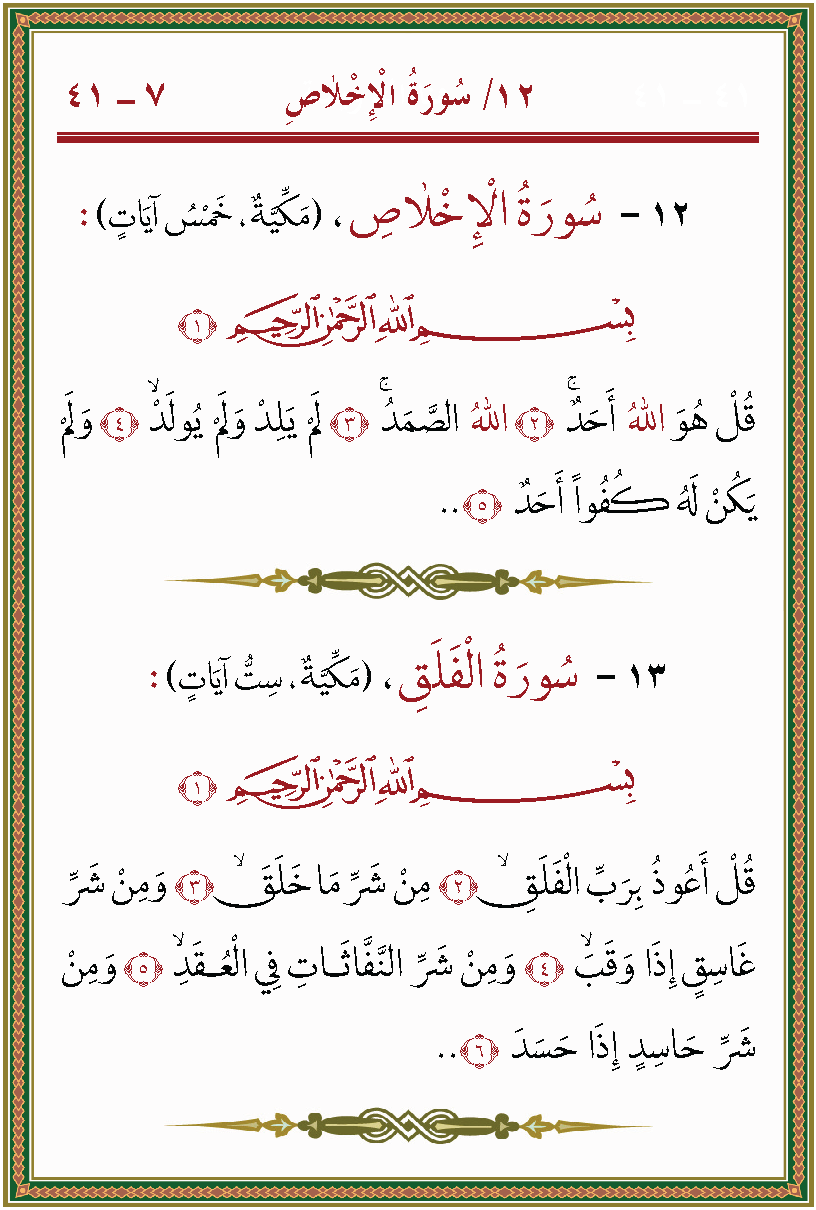 ١٢/ سُورَةُ الْإِخْلَاصِ ٧ – ٤١
١٢ – سُورَةُ الْإِخْلَاصِ، (مَكِّيَّةٌ، خَمْسُ آيَاتٍ) :
بِسْمِ ٱللَّهِ ٱلرَّحْمَٰنِ ٱلرَّحِيمِ ﴿١﴾
قُلْ هُوَ اللهُ أَحَدٌ ۚ ﴿٢﴾ اللهُ الصَّمَدُ ۚ ﴿٣﴾ لَمْ يَلِدْ وَلَمْ يُولَدْ ۙ ﴿٤﴾ وَلَمْ
يَكُنْ لَهُ كُفُواً أَحَدٌ ﴿٥﴾..
١٣ – سُورَةُ الْفَلَقِ، (مَكِّيَّةٌ، سِتُّ آيَاتٍ) :
بِسْمِ ٱللَّهِ ٱلرَّحْمَٰنِ ٱلرَّحِيمِ ﴿١﴾
قُلْ أَعُوذُ بِرَبِّ الْفَلَقِ ۙ ﴿٢﴾ مِنْ شَرِّ مَا خَلَقَ ۙ ﴿٣﴾ وَمِنْ شَرِّ
غَاسِقٍ إِذَا وَقَبَ ۙ ﴿٤﴾ وَمِنْ شَرِّ النَّفَّاثَاتِ فِي الْعُقَدِ ۙ ﴿٥﴾ وَمِنْ
شَرِّ حَاسِدٍ إِذَا حَسَدَ ﴿٦﴾..